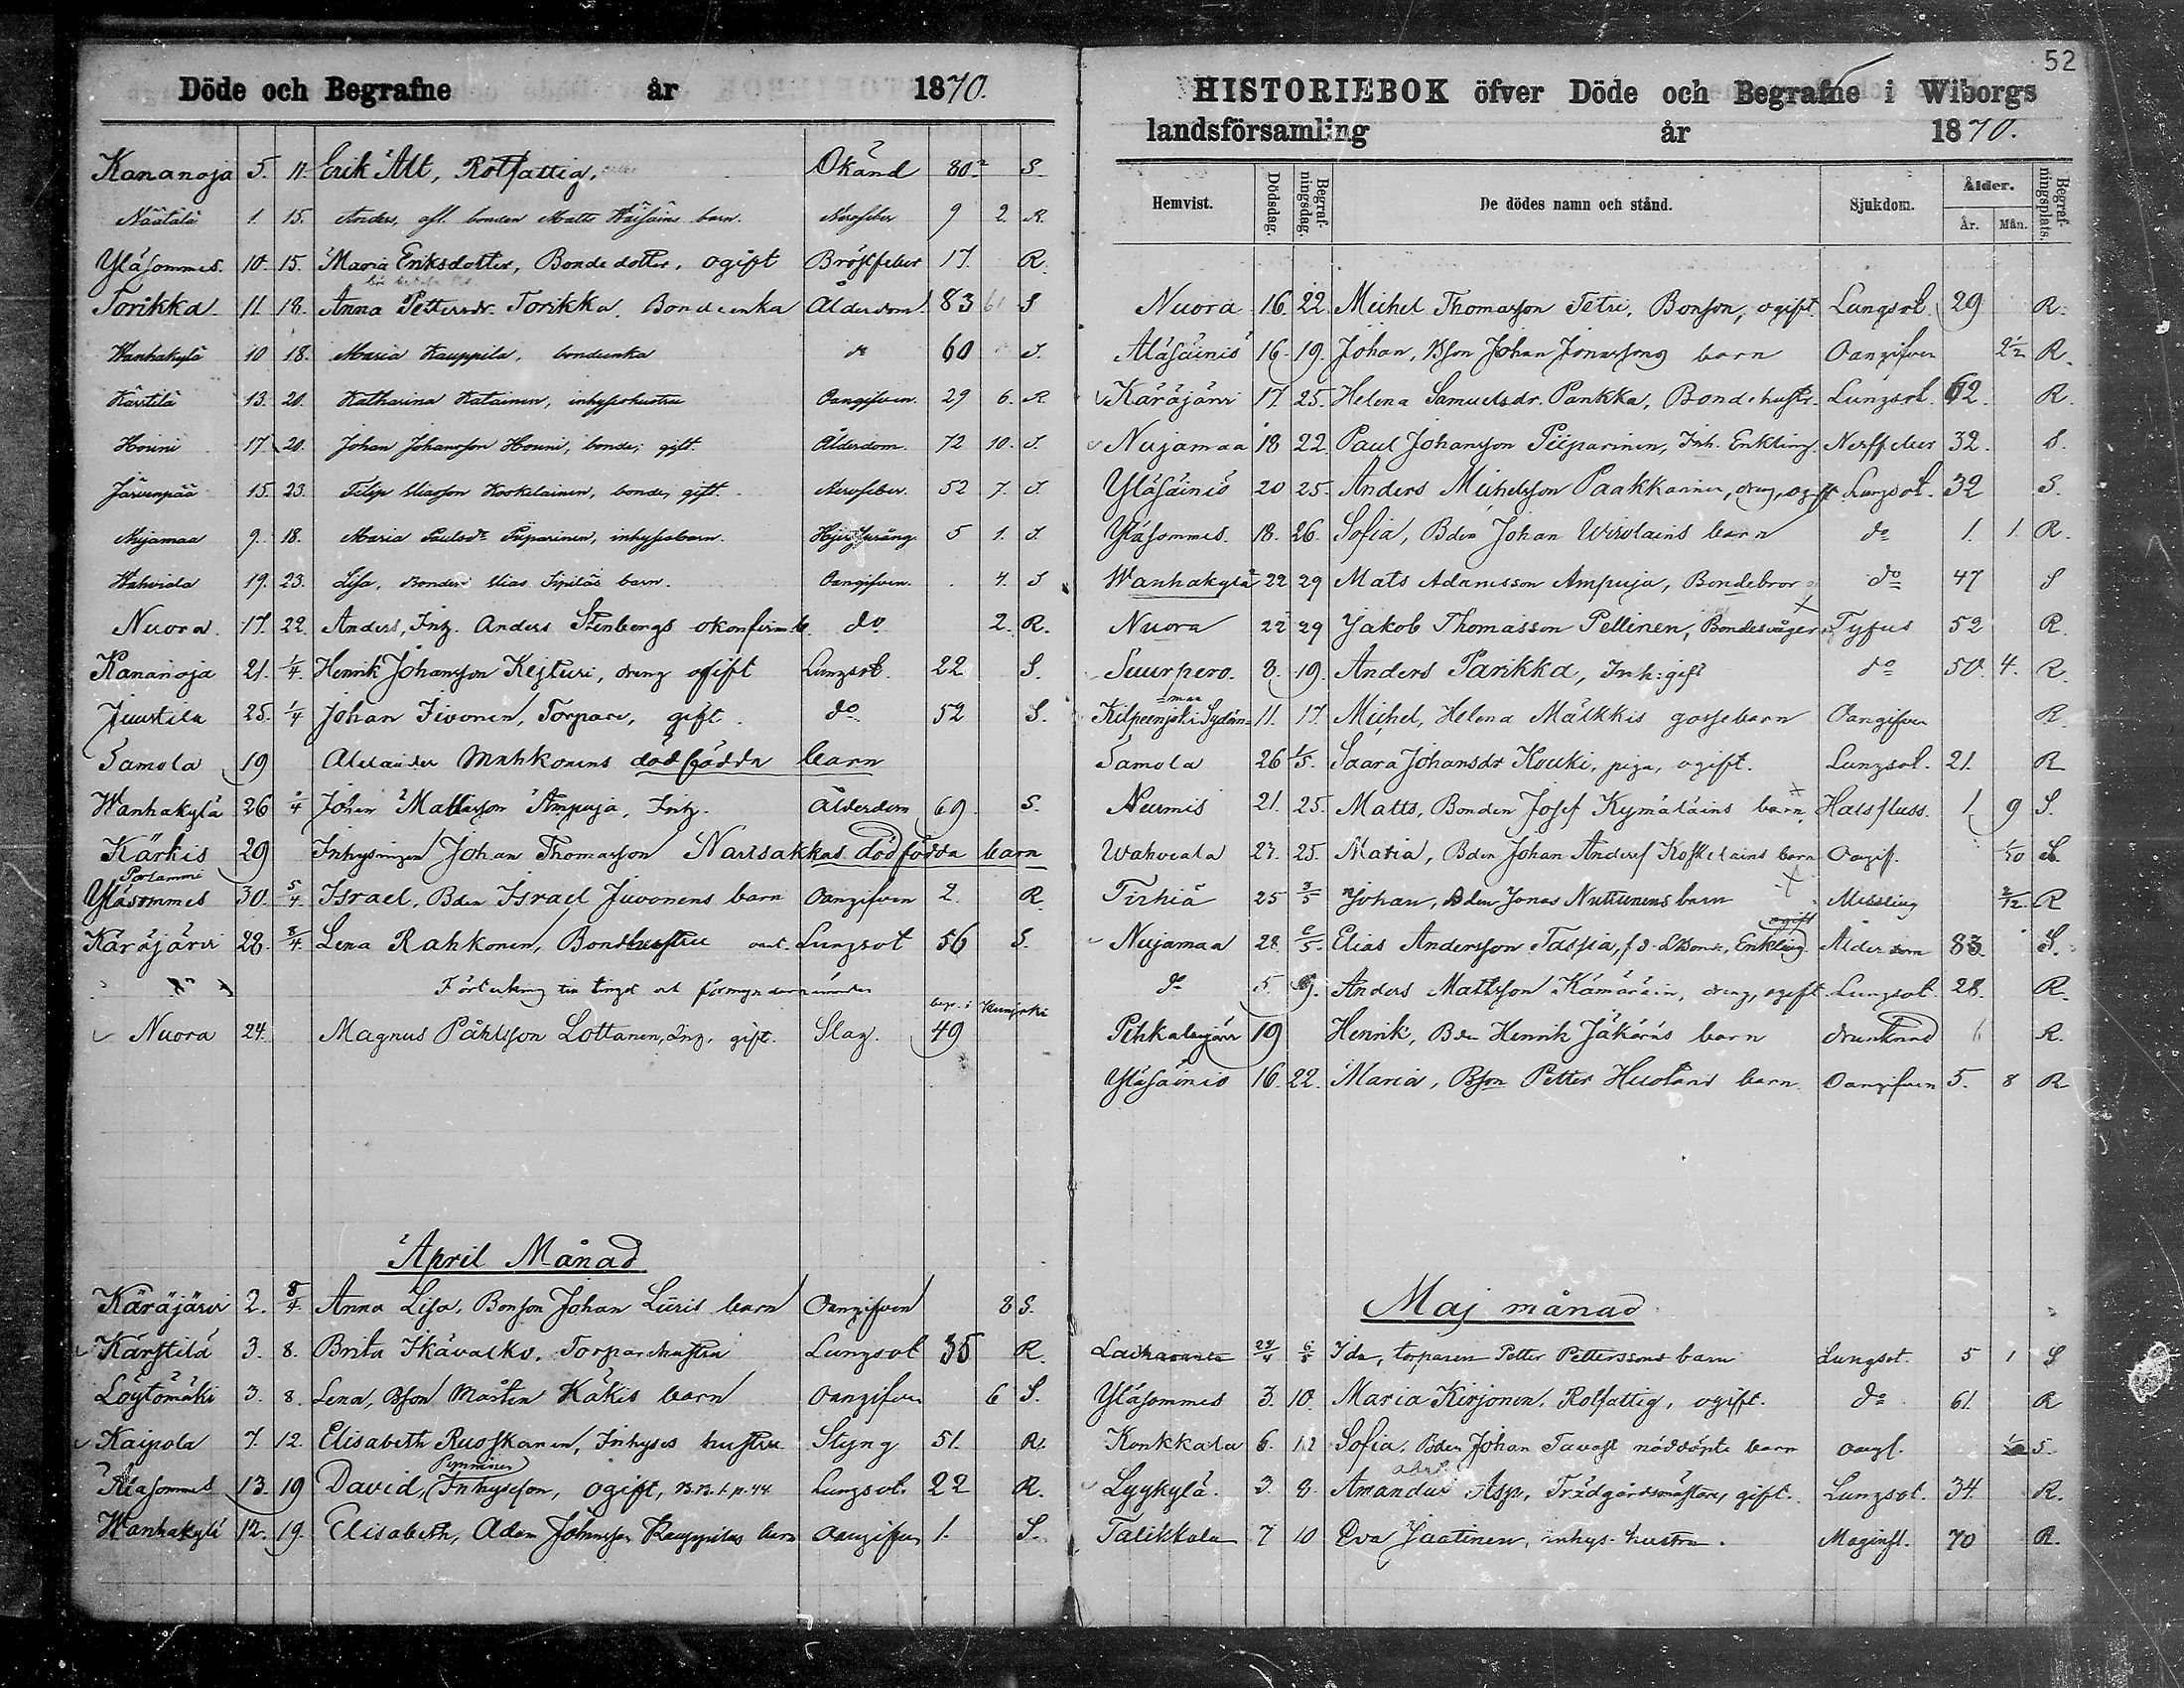 Döde och Begrafne år 1870.
Kananoja 5. 11. Erik Alt, Rotfattig. Okänd 80 S.
Näätälä 1. 15. Anders, afl. bonden Matts barn. Nervfeber 9 2. R.
Yläsommes. 10. 15. Maria Eriksdotter, Bondedotter, ogift Bröstfeber 17. R.
Torikka. 11. 18. Anna Pettersdr. Torikka. Bondeenka Ålderdom. 83 S
Wanhakylä 10 18. Maria Kauppila, bondeenka do 60 S.
Kärstilä 13. 20. Katharina Katainen, inhyseshustru Oangifven. 29 6. R.
Houni 17. 20. Johan Johansson Houni, bonde, gift. Ålderdom. 72 10. S.
Järvenpää 15. 23. Filip Eliasson Kookelainen, bonde, gift. Nervfeber. 52 7. S.
Nujamaa 9. 18. Maria Paulsdr Piiparinen, inhysesbarn. 5 1. S.
Wahviala 19. 23. Lisa, Bonden Elias Sipiläs barn. Oangifven. 4. S
Nuora. 17. 22. Anders, Inh. Anders Stenbergs okonfirm. b. do 2. R.
Kananoja 21. 1/4. Henrik Johansson Kejturi, dreng ogift Lungsot. 22 S.
Juustila 25. 1/4 Johan Sivonen, Torpare, gift. do 52 S.
Samola 19 Alexander Mahkonens dödfödda barn
Wanhakylä 26 /4 Johan Mattsson Ampuja, Inh. Ålderdom 69. S.
Kärkis 29 Inhysingen Johan Thomasson Narisakkas dödfödda barn
Porlammi
Yläsommes 30. 5/4. Israel, Bden Israel Juvonens barn Oangifven 2. R.
Käräjärvi 28. 8/4. Lena Rahkonen, Bondhustru Lungsot 56 S.
Förteckning
begr. i
Nuora 24. Magnus Påhlsson Lottanen, Inh. gift. Slag. 49
April Månad
Käräjärvi 2. 8/4. Anna Lisa, Bonson Johan Liiris barn Oangifven 8 S.
Kärstilä 3. 8. Brita Ikävalko, Torparehustru Lungsot 35 R.
Löytömäki 3. 8. Lena, Bson Mårten Käkis barn Oangifven 6 S.
Kaipola 7. 12. Elisabeth Ruoskanen, Inhyses hustru Styng 51. R.
Alasommes 13. 19 David, Inhyseson, ogift, Lungsot. 22 R.
Wanhakylä 12. 19. Elisabeth, Adam Johansson Kauppilas barn Oangifven 1. S.
52
HISTORIEBOK öfver Döde och Begrafne i Wiborgs
landsförsamling år 1870.
Hemvist. Dödsdag. Begrafningsdag. De dödes namn och stånd. Sjukdom. Ålder. År. Mån. Begrafningsplats.
Nuora 16. 22. Michel Thomasson Tetri, Bonson, ogift. Lungsot. 29 R.
Alasäiniö 16. 19. Johan, Bson Johan Jonassons barn Oangifven 2 1/2 R.
Käräjärvi 17. 25. Helena Samuelsdr. Pankka, Bondehustr. Lungsot. 62. R.
Nujamaa 18 22. Paul Johansson Piiparinen, Inh. Enkling. Nerffeber 32. S.
Yläsäiniö 20 25. Anders Michelsson Paakkarinen, dreng, ogift Lungsot. 32 S.
Yläsommes. 18. 26. Sofia, Bden Johan Wirolains barn do 1. 1. R.
Wanhakylä 22 29 Mats Adamsson Ampuja, Bondebror do 47 S
Nuora 22 29 Jakob Thomasson Pellinen, Bondesvåger Tyfus 52 R.
Suurpero. 8. 19. Anders Parikka, Inh: gift do 50. 4. R.
Kilpeenjoki Sydän=
=maa
11. 17. Michel, Helena Mälkkis gossebarn Oangifven R.
Samola 26 1/5. Saara Johansdr Kouki, piga, ogift. Lungsot. 21. R
Nurmis 21. 25. Matts, Bonden Josef Kymäläins barn, Halsfluss. 1. 9 S.
Wahviala 23. 25. Maria, Bden Johan Anders Koskelains barn Oangif. 1/30 S.
Tirhiä 25 3/5 Johan, Bden Jonas Nuttunens barn Messling 2/12. R
ogift
Nujamaa 28. 6/5. Elias Andersson Tassia, f d. Bonde, Enkling Ålderdom 83. S.
do 5. 9. Anders Mattsson Kämäräin, dreng, ogift Lungsot. 28. R.
Pihkalanjärvi 19 Henrik, Bden Henrik Jäkäräs barn drunknad R.
Yläsäiniö 16. 22. Maria, Bson Petter Huolans barn Oangifven 5. 8 R
Maj månad
24/4 6/5 Ida, torparen Petter Petterssons barn Lungsot. 5 1 S
Yläsommes 3. 10. Maria Kirjonen, Rotfattig, ogift. do 61. R
Konkkala 6. 12 Sofia, Bden Johan Tavast nöddöpte barn oangf. S.
Lyykylä. 3. 8. Amandus Asp, Trädgårdsmästare, gift. Lungsot. 34. R.
Talikkala 7 10 Eva Jaatinen, inhys. hustru. Maginfl. 70 R.